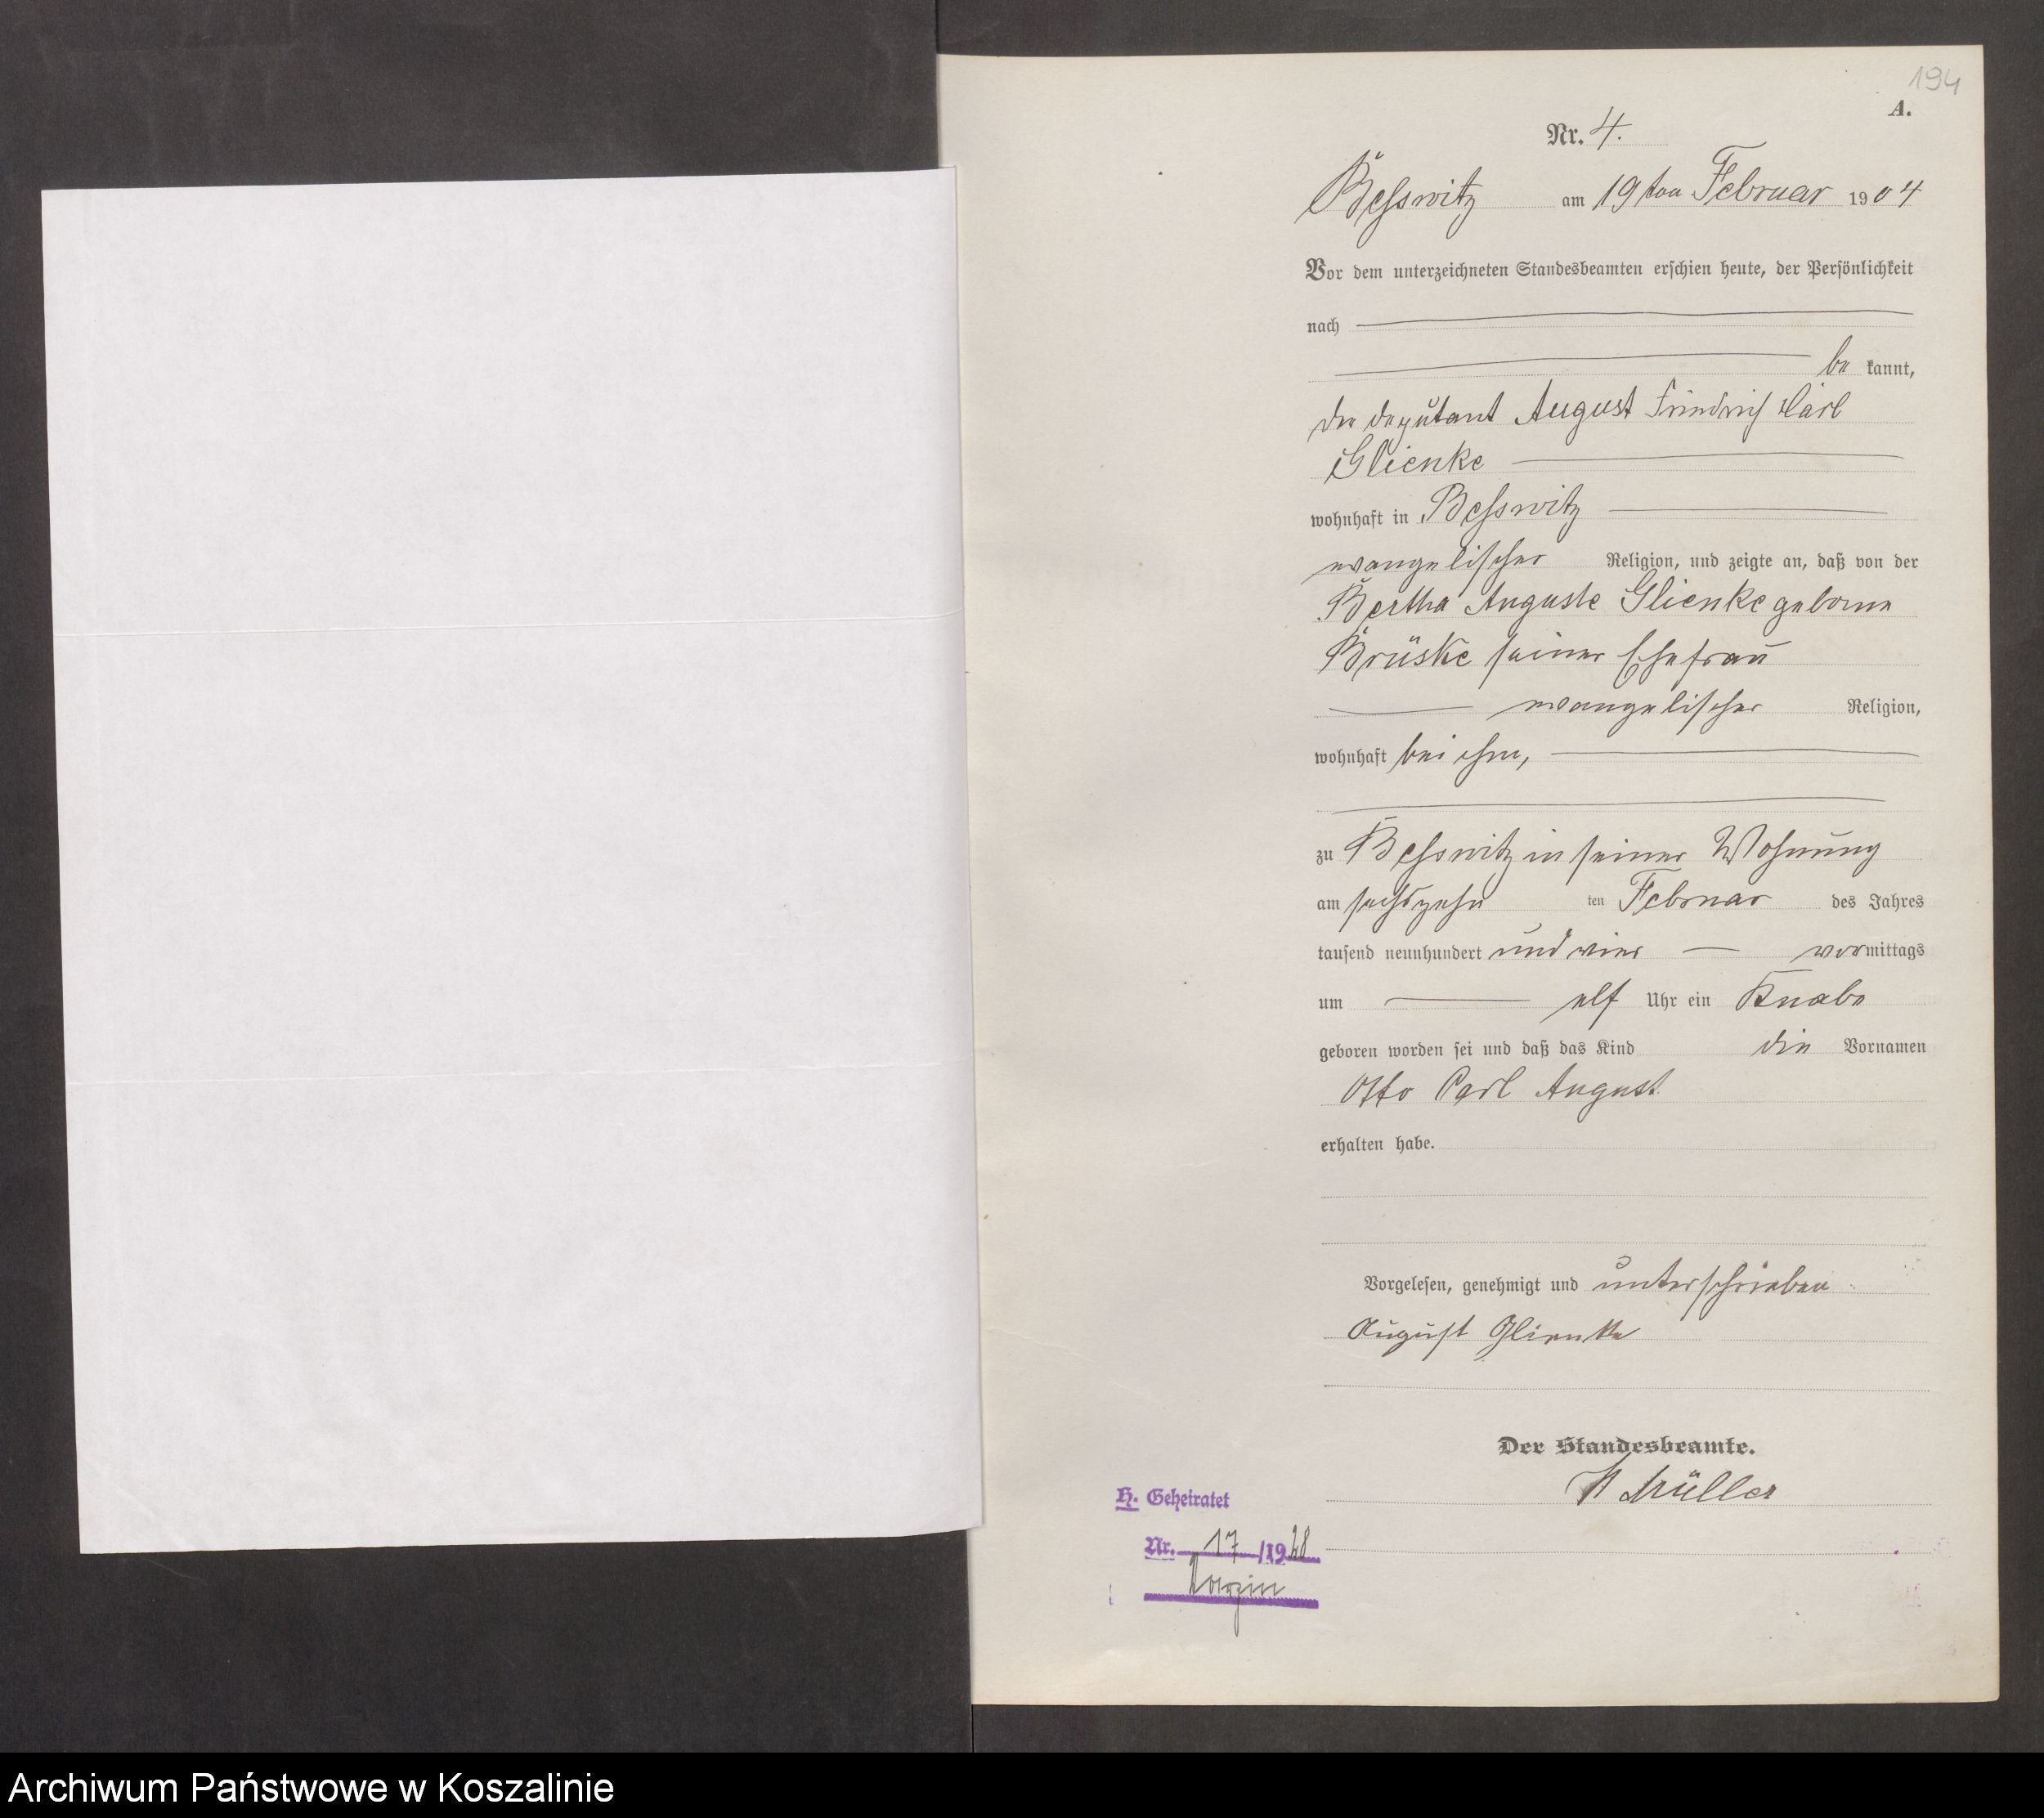 194
A.
Nr. 4.
Beßwitz am 19ten Februar 1904
Vor dem unterzeichneten Standesbeamten erschien heute, der Persönlichkeit
nach
be kannt,
der Deputant August Friedrich Carl
Glienke
wohnhaft in Beßwitz
evangelischer Religion, und zeigte an, daß von der
Bertha Auguste Glienke geborne
Brüske seiner Ehefrau
evangelischer Religion,
wohnhaft bei ihm,
zu Beßwitz in seiner Wohnung
am sechszehn ten Februar des Jahres
tausend neunhundert und vier vormittags
um elf Uhr ein Knabe
geboren worden sei und daß das Kind die Vornamen
Otto Carl August
erhalten habe.
Vorgelesen, genehmigt und unterschrieben
August Glienke
Der Standesbeamte.
Müller
H. Geheiratet
Nr. 17 /1928
Varzin
Archiwum Państwowe w Koszalinie